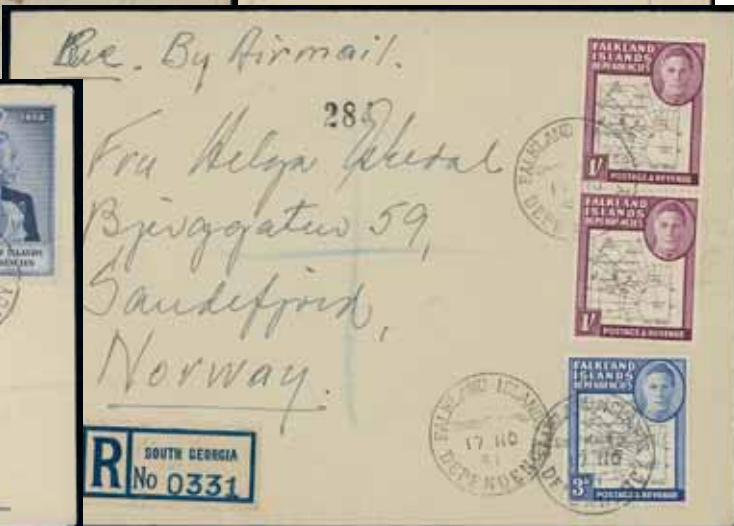 Rec. By Airmail.
284
Fru Helga
Bjerggaten 59,
Sandefjord,
Norway.
R
SOUTH GEORGIA
No 0331
FALKLAND
ISLANDS
DEPENDENCIES
1/-
POSTAGE & REVENUE
FALKLAND
ISLANDS
DEPENDENCIES
1/-
POSTAGE & REVENUE
FALKLAND
ISLANDS
DEPENDENCIES
3d
POSTAGE & REVENUE
FALKLAND ISLANDS
17 NO
51
DEPENDENCIES